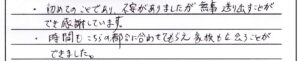 ・初めてのことであり、不安がありましたが無事送り出すことが
でき感謝しています。
・時間もこちらの都合に合わせてもらえ家族も会うことが
できました。